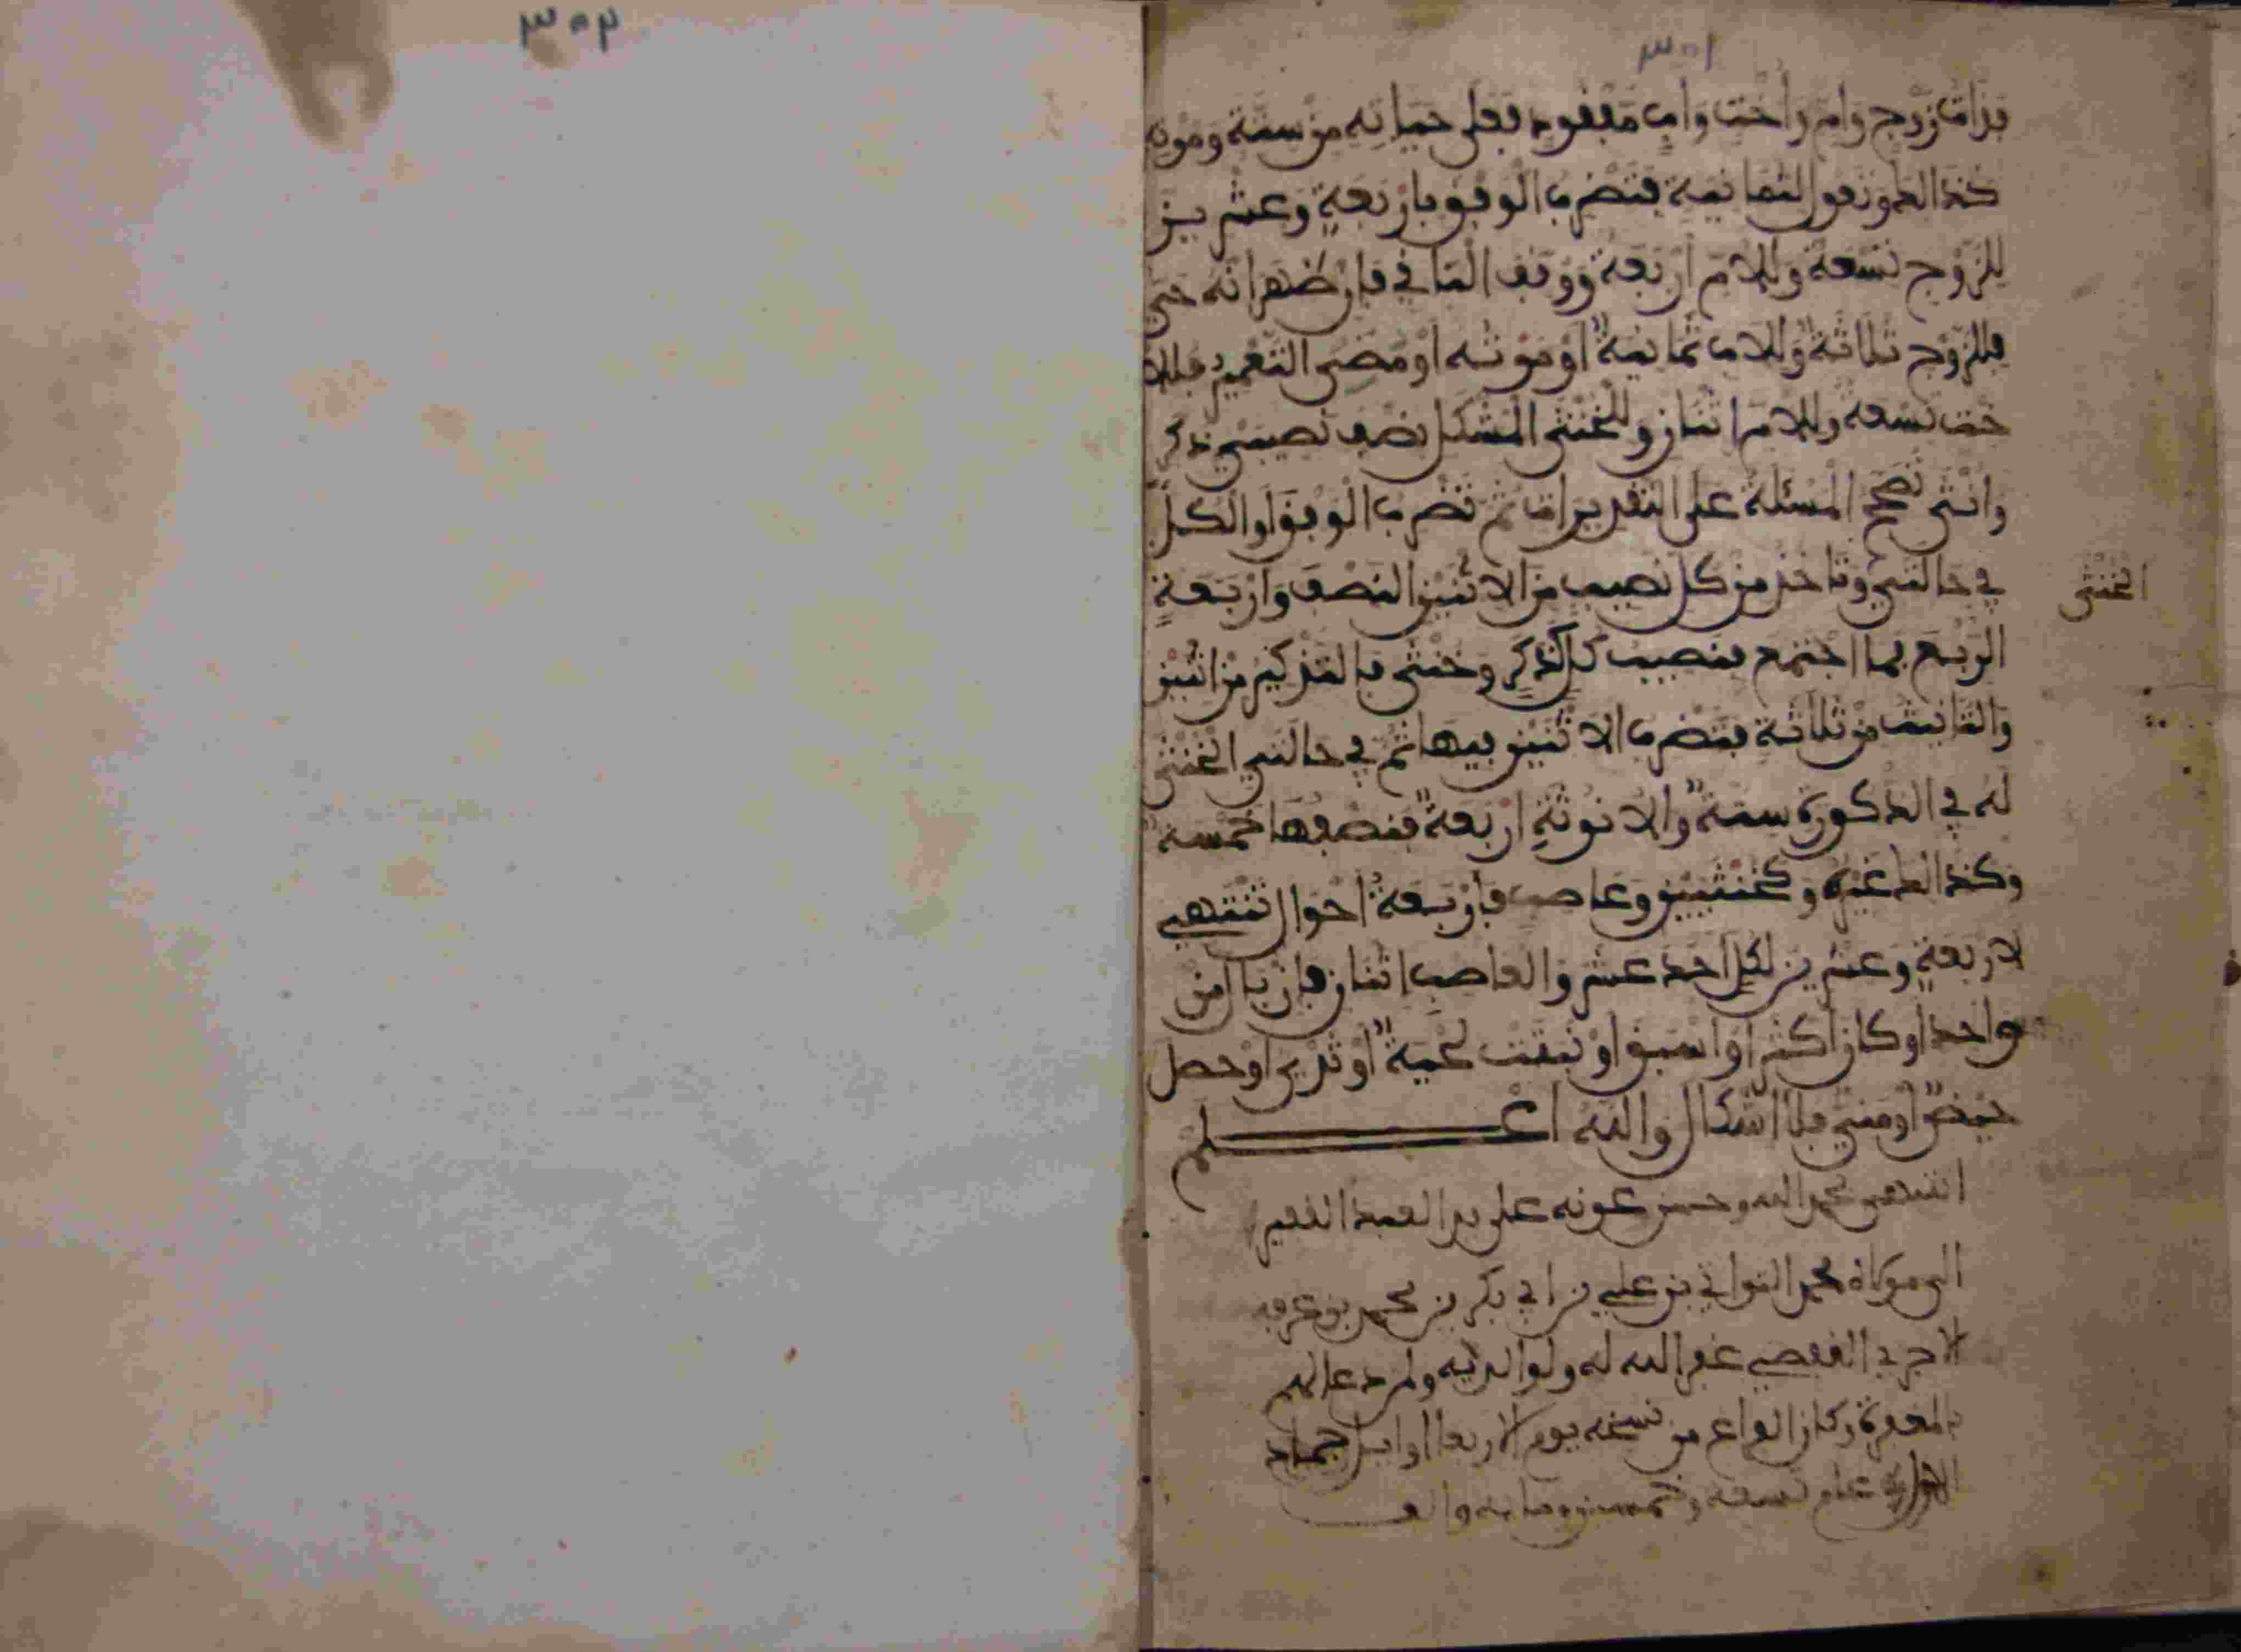 ٣٠١
فإن ماتت زوج وأم وأخت وأب مفقود فعلى حياته من ستة وموته
كذلك وتعول لثمانية فتضرب الوفق بأربعة وعشرين
للزوج تسعة وللام أربعة ووقف الباقي فإن ظهر أنه حي
فللزوج ثلاثة وللاب ثمانية أو موته أو مضي التعمير فللا
خت تسعة وللام اثنان وللخنثى المشكل نصف نصيبي ذكر
وأنثى تصحح المسئلة على التقديرات ثم تضرب الوفق أو الكل
في حالتي وتأخذ من كل نصيب من الاثنين النصف وأربعة
الربع فما اجتمع فنصيب كل كذكر وخنثى فالتذكير من اثنين
والتأنيث من ثلاثة فتضرب الاثنين فيها ثم في حالتي الخنثى
له في الذكورة ستة والانوثة أربعة فنصفها خمسة
وكذلك غيره وكخنثيين وعاصب فأربعة أحوال تنتهي
لاربعة وعشرين لكل أحد عشر والعاصب اثنان فإن بال من
واحد أو كان أكثر أو أسبق أو نبتت لحية أو ثدي أو حصل
حيض أو مني فلا اشكال والله أعلم
انتهى بحمد الله وحسن عونه على يد العبد الفقير
الى مولاه محمد التواتي بن علي بن أبي بكر بن محمد بن عرفه
القفصي غفر الله له ولوالديه ولمن دعا لهم
بالمغفرة وكان الفراغ من نسخه يوم الاربعا أوايل جماد
عام تسعة وخمسين ومايه والف
الخنثى
٣٠٢